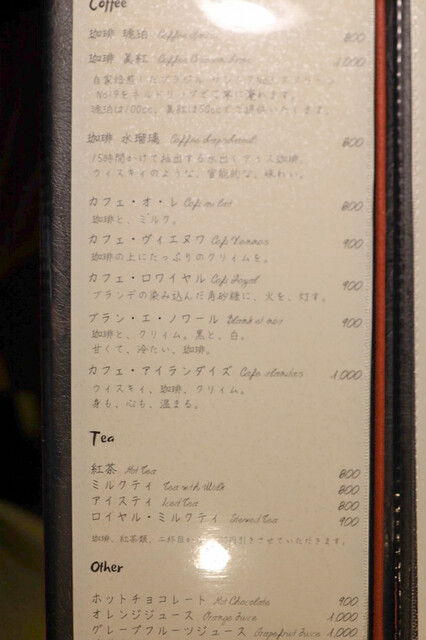 Coffee
珈琲 琥珀 800
珈琲 真紅 1,000
琥珀は100cc、真紅は50ccずつ
珈琲 水瑠璃 800
15時間かけて抽出する水出しアイス珈琲。
ウィスキィのような、官能的な、味わい。
カフェ・オ・レ Cafe au lait 800
珈琲と、ミルク。
カフェ・ヴィエヌワ Cafe Viennois 900
珈琲の上にたっぷりのクリイムを。
カフェ・ロワイヤル Cafe Royal 900
ブランデの染み込んだ角砂糖に、火を、灯す。
ブラン・エ・ノワール Blanc et noir 900
珈琲と、クリイム。黒と、白。
甘くて、冷たい、珈琲。
カフェ・アイランダイズ Cafe irlandais 1,000
ウィスキィ、珈琲、クリイム。
身も、心も、温まる。
Tea
紅茶 Hot tea 800
ミルクティ Tea with Milk 800
アイスティ Iced tea 800
ロイヤル・ミルクティ Stewed tea 900
珈琲、紅茶類、二杯目から 円引きさせていただきます。
Other
ホットチョコレート Hot Chocolate 900
オレンジジュース Orange Juice 1,000
グレープフルーツジュース Grapefruit Juice 1,000